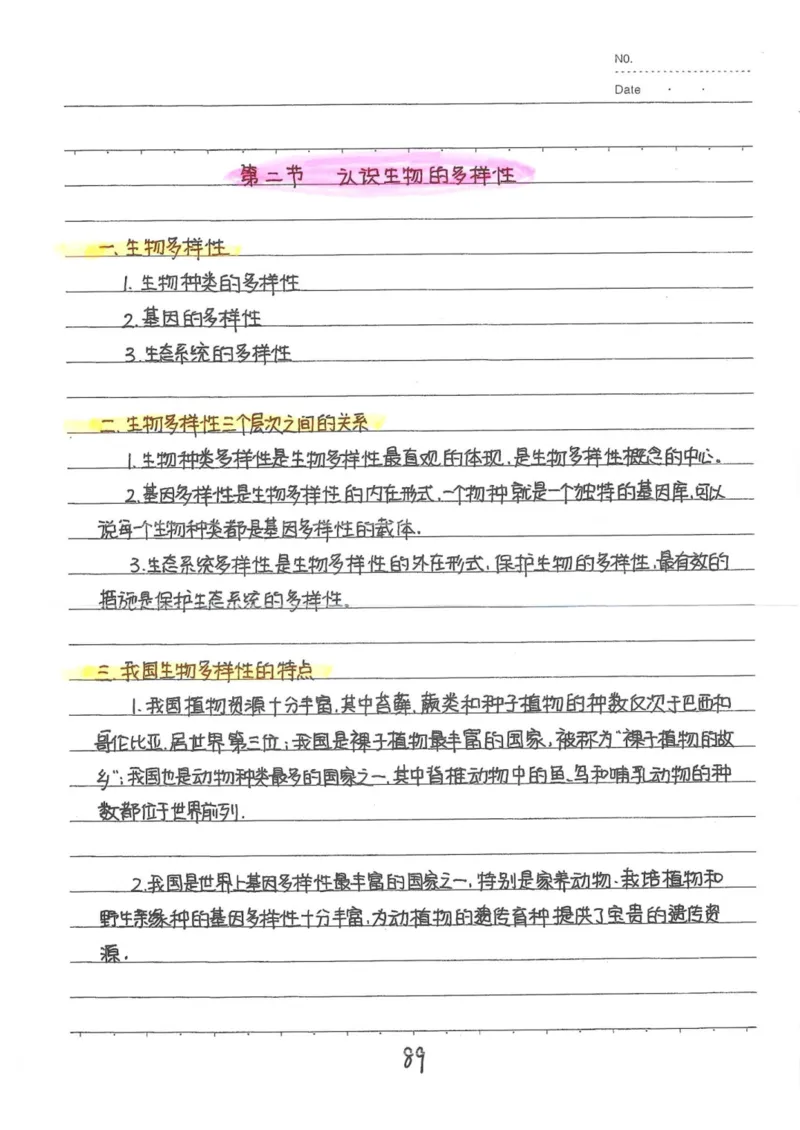 NO.
Date · ·
第二节 认识生物的多样性
一、生物多样性
1. 生物种类的多样性
2. 基因的多样性
3. 生态系统的多样性
二、生物多样性三个层次之间的关系
1. 生物种类多样性是生物多样性最直观的体现,是生物多样性概念的中心。
2. 基因多样性是生物多样性的内在形式,一个物种就是一个独特的基因库,可以
说每一个生物种类都是基因多样性的载体.
3. 生态系统多样性是生物多样性的外在形式,保护生物的多样性,最有效的
措施是保护生态系统的多样性。
三、我国生物多样性的特点
1. 我国植物资源十分丰富,其中苔藓、蕨类和种子植物的种数仅次于巴西和
哥伦比亚,居世界第三位;我国是裸子植物最丰富的国家,被称为“裸子植物的故
乡”;我国也是动物种类最多的国家之一,其中脊椎动物中的鱼、鸟和哺乳动物的种
数都位于世界前列.
2. 我国是世界上基因多样性最丰富的国家之一,特别是家养动物、栽培植物和
野生亲缘种的基因多样性十分丰富,为动植物的遗传育种提供了宝贵的遗传资
源.
89